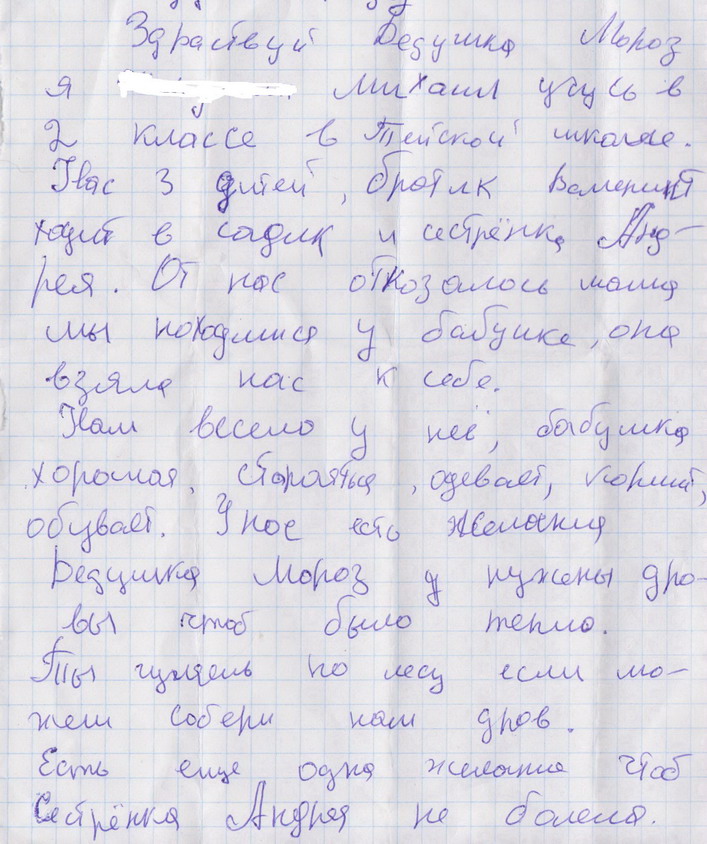 Здраствуй Дедушка Мороз
я Михаил учусь в
2 классе в Тейской школе.
Унас 3 дитей, братик Валентит
ходит в садик и сестрёнка Анд-
рея. От нас отказалось мама
мы находмися у бабушке, она
взяла нас к себе.
Нам весело у неё, бабушка
хорошая, стараятся, одевает, кормит,
обувает. Унас есть желания
Дедушка Мороз у нужены дро-
вы чтоб было тепло.
Ты гуляешь по лесу если мо-
жеш собери нам дров.
Есть еще одна желания чтоб
Сестрёнка Андрея не болела.